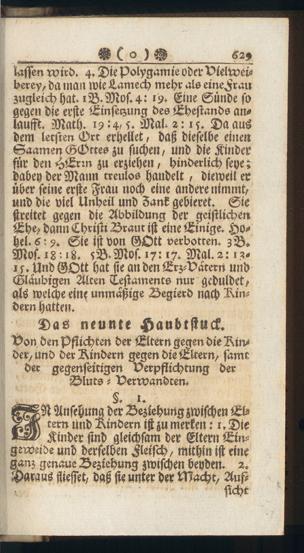 ( o ) 629
lassen wird. 4. Die Polygamie oder Vielwei-
berey, da man wie Lamech mehr als eine Frau
zugleich hat. 1 B. Mos. 4: 19. Eine Sünde so
gegen die erste Einsetzung des Ehestands an-
laufft. Math. 19: 4, 5. Mal. 2: 15. Da aus
dem letsten Ort erhellet, daß dieselbe einen
Saamen GOttes zu suchen, und die Kinder
für den HErrn zu erziehen, hinderlich seye;
dabey der Mann treulos handelt, dieweil er
über seine erste Frau noch eine andere nimmt,
und die viel Unheil und Zank gebieret. Sie
streitet gegen die Abbildung der geistlichen
Ehe, dann Christi Braut ist eine Einige. Ho-
hel. 6: 9. Sie ist von GOtt verbotten. 3 B.
Mos. 18: 18. 5 B. Mos. 17: 17. Mal. 2: 13-
15. Und GOtt hat sie an den Ertz-Vätern und
Gläubigen Alten Testaments nur geduldet,
als welche eine unmäßige Begierd nach Kin-
dern hatten.
Das neunte Haubtstuck.
Von den Pflichten der Eltern gegen die Kin-
der, und der Kindern gegen die Eltern, samt
der gegenseitigen Verpflichtung der
Bluts-Verwandten.
§. 1.
IN Ansehung der Beziehung zwischen El-
tern und Kindern ist zu merken: 1. Die
Kinder sind gleichsam der Eltern Ein-
geweide und derselben Fleisch, mithin ist eine
ganz genaue Beziehung zwischen beyden. 2.
Daraus fliesset, daß sie unter der Macht, Auf-
sicht